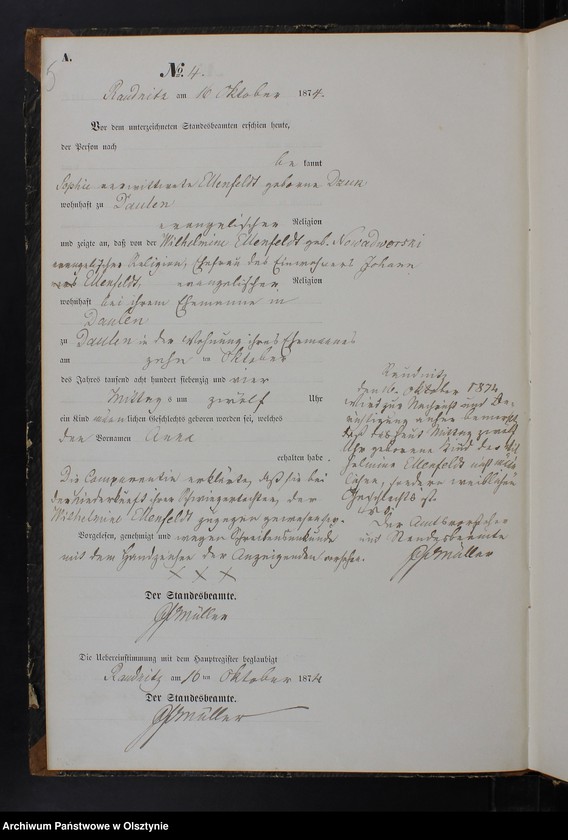 A.
5
№. 4.
Raudnitz am 16 Oktober 1874.
Vor dem unterzeichneten Standesbeamten erschien heute,
der Person nach
be kannt
Sophie verwittwete Ellenfeldt geborne Daun
wohnhaft zu Daulen
evangelischer Religion
und zeigte an, daß von der Wilhelmine Ellenfeldt geb. Nowadworski
evangelischer Religion, Ehefrau des Einwohners Johann
Ellenfeldt, evangelischer Religion
wohnhaft bei ihrem Ehemanne in
Daulen
zu Daulen in der Wohnung ihres Ehemannes
am zehn ten Oktober
des Jahres tausend acht hundert siebenzig und vier
Mittags um zwölf Uhr
ein Kind männlichen Geschlechts geboren worden sei, welches
den Vornamen Anna
erhalten habe.
Die Comparentin erklärte, daß sie bei
der Niederkunft ihrer Schwiegertochter, der
Wilhelmine Ellenfeldt zugegen gewesen sei.
Vorgelesen, genehmigt und wegen Schreibensunkunde
mit dem Handzeichen der Anzeigenden versehen.
x x x
Der Standesbeamte.
Müller
Raudnitz
den 16. Oktober 1874
wird zur Nachricht und Be-
richtigung anher bemerkt
daß das heut Mittag zwölf
Uhr geborene Kind der Wil-
helmine Ellenfeldt nicht männ-
lichen, sondern weiblichen
Geschlechts ist.
Der Amtsvorsteher
und Standesbeamte
Müller
Die Uebereinstimmung mit dem Hauptregister beglaubigt
Raudnitz am 16 ten Oktober 1874
Der Standesbeamte.
Müller
Archiwum Państwowe w Olsztynie